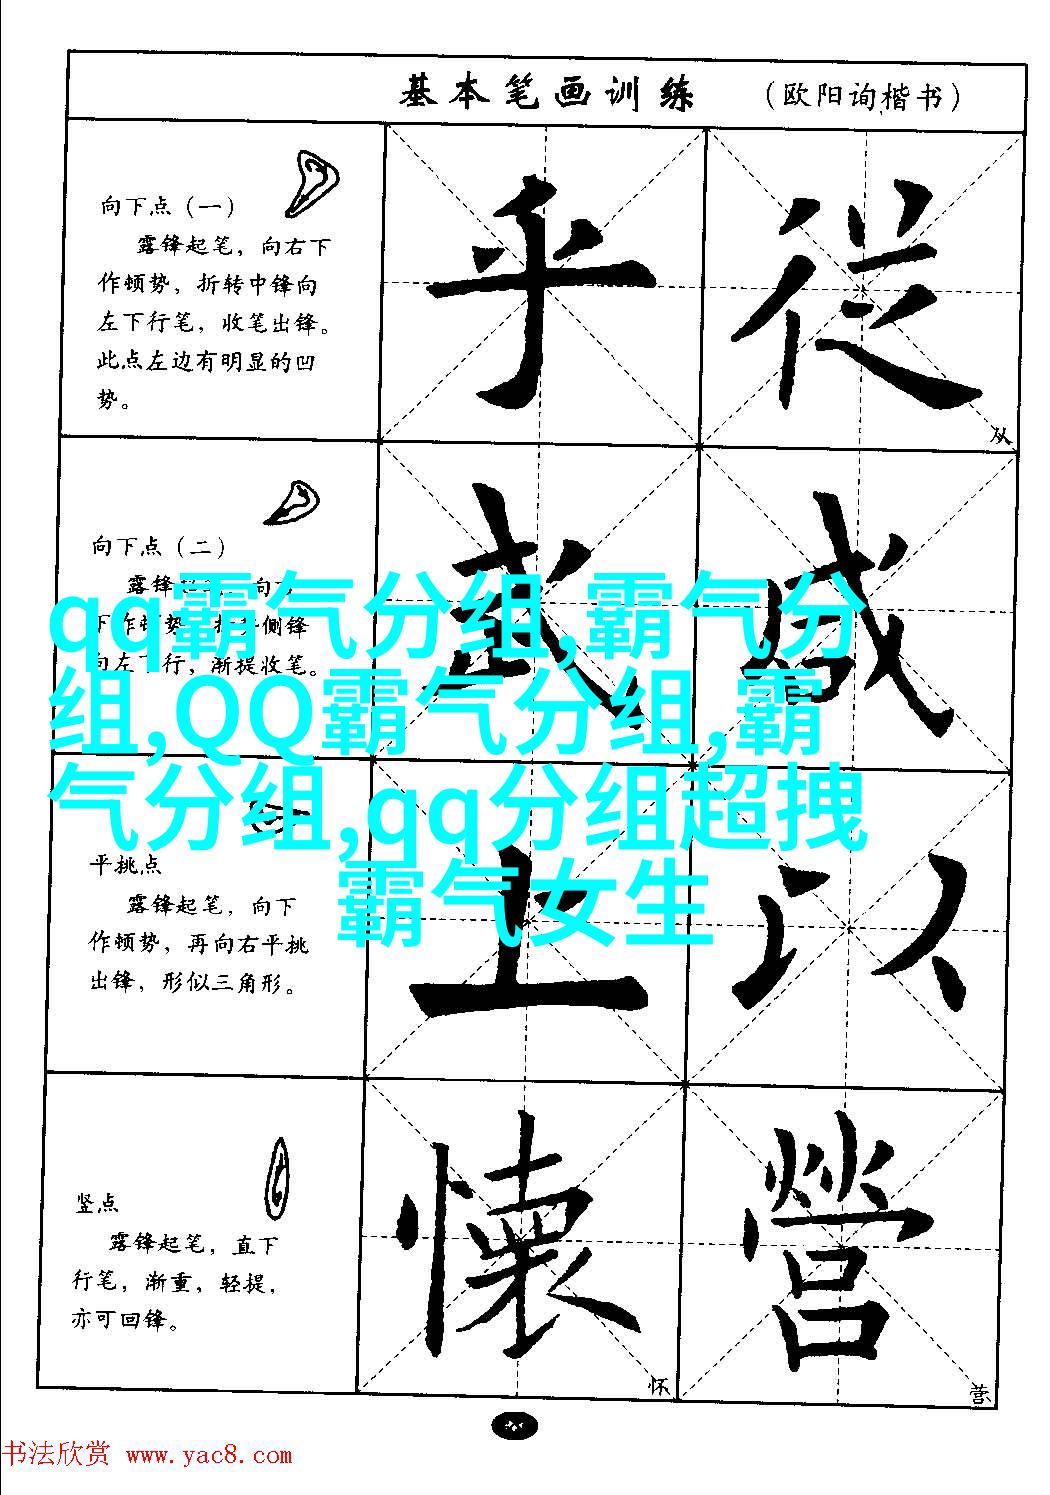 基本笔画训练 （欧阳询楷书）
向下点（一）
露锋起笔，向右下
作顿势，折转中锋向
左下行笔，收笔出锋。
此点左边有明显的凹
势。
乎 從
从
向下点（二）
露锋起笔，向
下作顿势，侧锋
向左下行，渐提收笔。
武 咸
qq霸气分组,霸气分
组,QQ霸气分组,霸
气分组,qq分组超拽
霸气女生
平挑点
露锋起笔，向下
作顿势，再向右平挑
出锋，形似三角形。
上 以
竖点
露锋起笔，直下
行笔，渐重，轻提，
亦可回锋。
懷 營
怀 营
书法欣赏 www.yac8.com